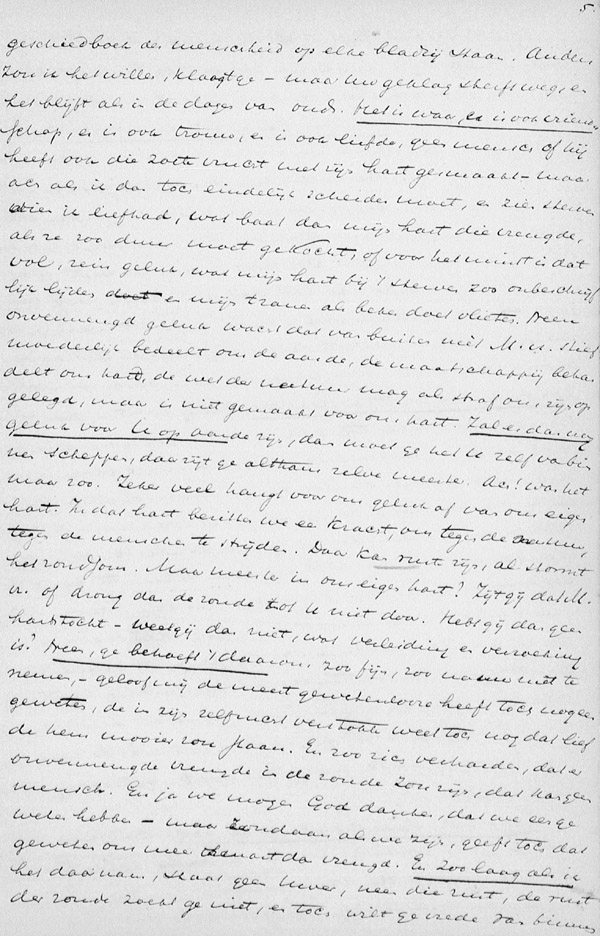 5.
geschiedboek der menscheid op elke bladzij staan. Anders
zou ik het willen, klaagt ge – maar uw geklag sterft weg, en
het blijft als in de dagen van ouds. Het is waar, er is ook vriend-
schap, er is ook trouw, er is ook liefde, geen mensch of hij
heeft ook die zoete vrucht met zijn hart gesmaakt – maar
ach als ik dan toch eindelijk scheiden moet, en zien sterven
wien ik liefhad, wat baat dan mijn hart die vreugde,
als ze zoo duur moet gekocht, of voor het minst is dat
vol, rein geluk, wat mijn hart bij 't sterven zoo onbeschrijf
lijk lijden doet en mijn tranen als beken doet vlieten. Neen
onvermengd geluk wacht dat van buiten niet M. H. stief
moederlijk bedeelt ons de aarde, de maatschappij behan
delt ons hard, de wet der natuur mag als straf ons zijn op
gelegd, maar is niet gemaakt voor ons hart. Zal er dan nog
geluk voor U op aarde zijn, dan moet ge het U zelf van bin
nen scheppen, daar zijt ge althans zelve meester. Ach! was het
maar zoo. Zeker veel hangt voor ons geluk af van ons eigen
hart. In dat hart bezitten we een kracht, om tegen de natuur,
tegen de menschen te strijden. Daar kan rust zijn, al stormt
het rondom. Maar meester in ons eigen hart? Zijt gij dat M.
H. of drong dan de zonde tot U niet door. Hebt gij dan geen
hartstocht – weet gij dan niet, wat verleiding en verzoeking
is? Neen, ge behoeft 't daarom, zoo fijn, zoo nauw niet te
nemen, – geloof mij de meest gewetenlooze heeft toch nog een
geweten, de in zijn zelfzucht verstokte weet toch nog dat lief
de hem mooier zou staan. En zoo zien verharden, dat er
onvermengde vreugde in de zonde zou zijn, dat kan geen
mensch. En ja we mogen God danken, dat we een ge
weten hebben – maar zondaar als we zijn, geeft toch dat
geweten ons meer smart dan vreugd. En zoo laag als ik
het daar nam, staat geen uwer, neen die rust, de rust
der zonde zocht ge niet, en toch wilt ge vrede van binnen